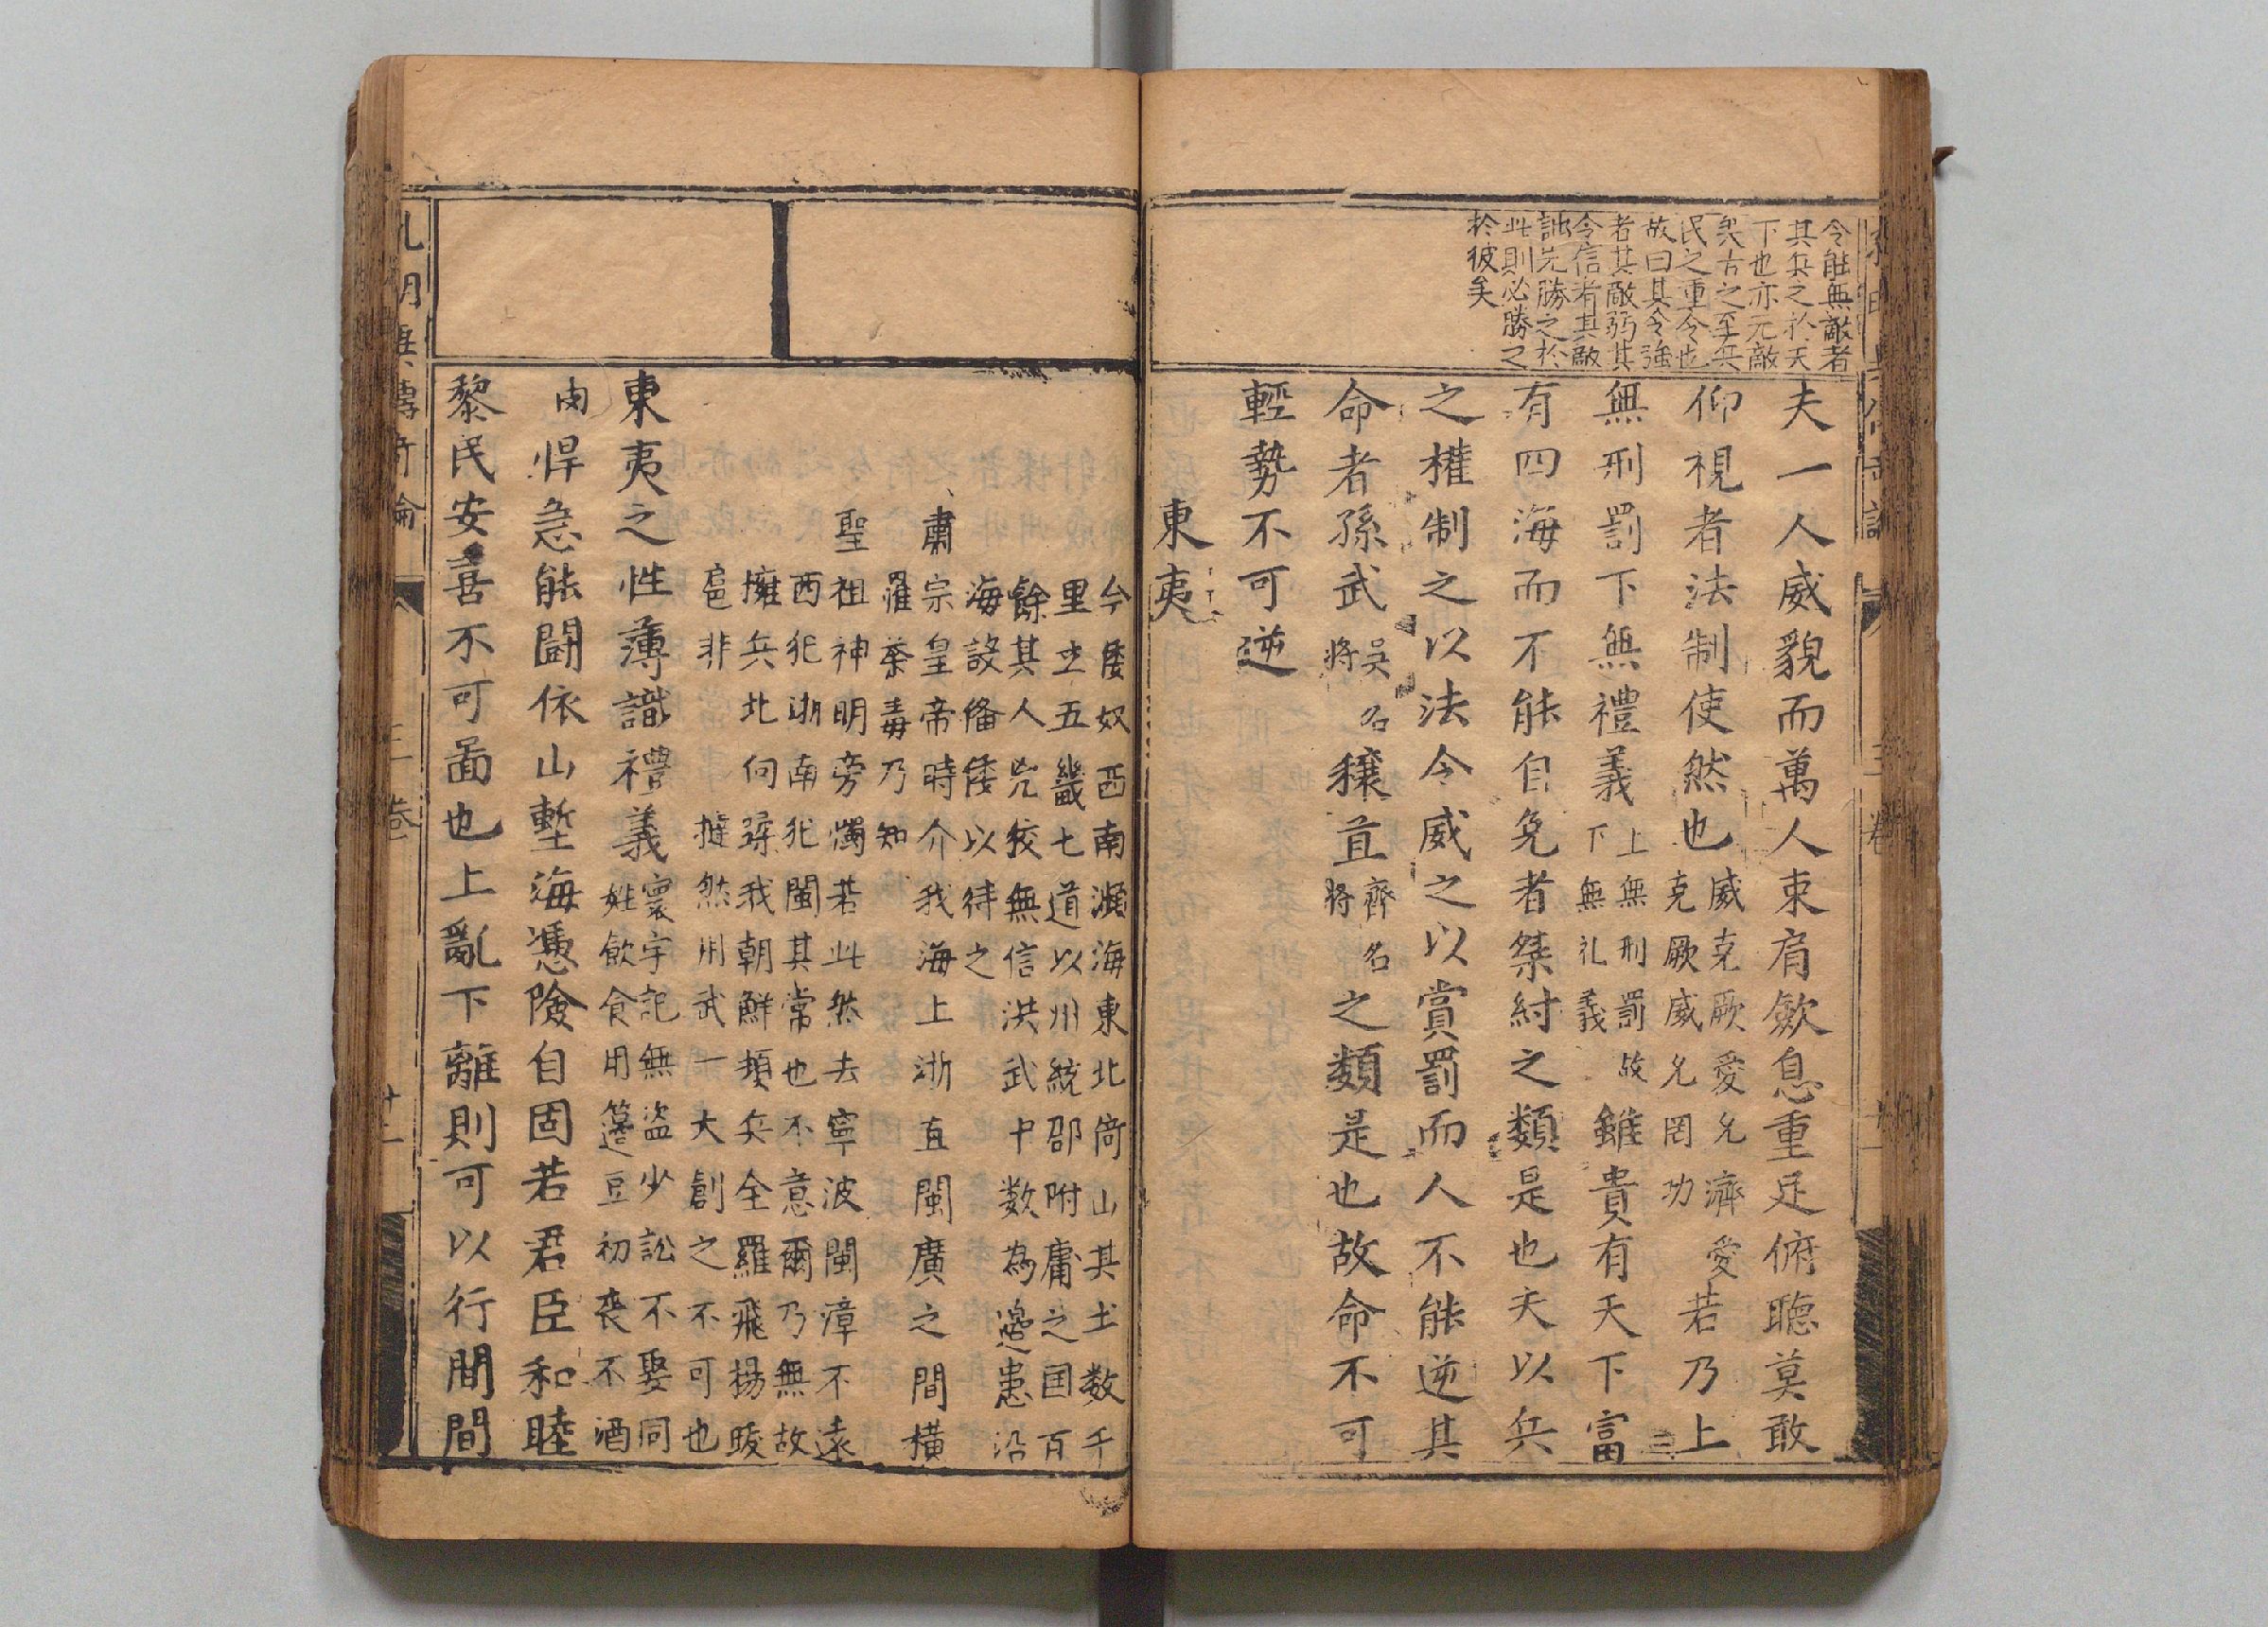 令能無敵者
其兵之於天
下也亦无敵
矣古之至兵
民之重令也
故曰其令強
者其敵弱其
令信者其敵
詘先勝之於
此則必勝之
於彼矣
夫一人威貌而萬人束肩歛息重足俯聽莫敢
仰視者法制使然也威克厥愛允濟愛克厥威允罔功若乃上
無刑罰下無禮義上無刑罰故下無礼義雖貴有天下富
有四海而不能自免者桀紂之類是也夫以兵
之權制之以法令威之以賞罰而人不能逆其
命者孫武吳名將穰苴齊名將之類是也故命不可
輕勢不可逆
東夷
今倭奴西南瀕海東北倚山其土数千
里主五畿七道以州統郡附庸之国百
餘其人兇狡無信洪武中数為邊患沿
海設備倭以待之
肅宗皇帝時介我海上浙直閩廣之間橫
羅荼毒乃知
聖祖神明旁燭若此然去寧波閩漳不遠
西犯浙南犯閩其常也不意爾乃無故
擁兵北向躪我朝鮮頻兵全羅飛揚跋
扈非摧然用武一大創之不可也
東夷之性薄識禮義寰宇記無盜少訟不娶同姓飲食用籩豆初喪不酒肉
悍急能鬪依山塹海憑險自固若君臣和睦
黎民安喜不可啚也上亂下離則可以行間間
三卷